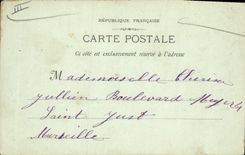 III
RÉPUBLIQUE FRANÇAISE
CARTE POSTALE
Ce côté est exclusivement réservé à l'adresse
Mademoiselle
Jullien Boulevard
Saint Just
Marseille